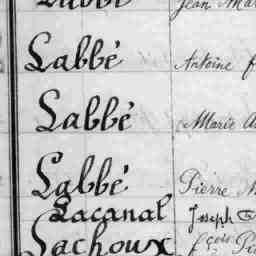 Labbé Jean
Labbé Antoine
Labbé Marie
Labbé Pierre
Lacanal Joseph
Lachoux fçois